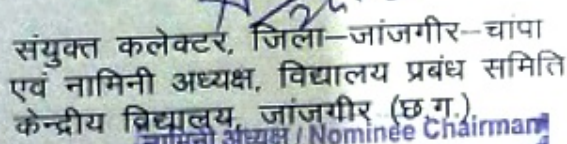 संयुक्त कलेक्टर, जिला–जांजगीर–चांपा
एवं नामिनी अध्यक्ष, विद्यालय प्रबंध समिति
केन्द्रीय विद्यालय, जांजगीर (छ.ग.)
नामिनी अध्यक्ष / Nominee Chairman